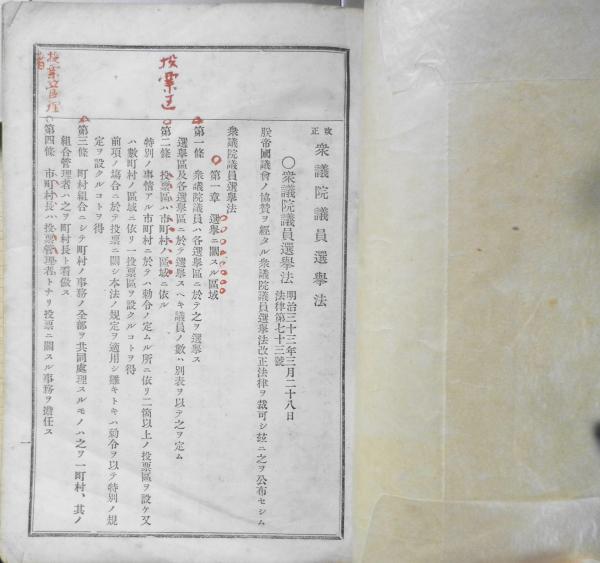 改正 衆議院議員選擧法
○衆議院議員選擧法 明治三十三年三月二十八日
法律第七十三號
朕帝國議會ノ協贊ヲ經タル衆議院議員選擧法改正法律ヲ裁可シ玆ニ之ヲ公布セシム
衆議院議員選擧法
第一章 選擧ニ關スル區域
第一條 衆議院議員ハ各選擧區ニ於テ之ヲ選擧ス
選擧區及各選擧區ニ於テ選擧スヘキ議員ノ數ハ別表ヲ以テ之ヲ定ム
第二條 投票區ハ市町村ノ區域ニ依ル
特別ノ事情アル市町村ニ於テハ勅令ノ定ムル所ニ依リ二箇以上ノ投票區ヲ設ケ又
ハ數町村ノ區域ニ依リ一投票區ヲ設クルコトヲ得
前項ノ場合ニ於テ投票ニ關シ本法ノ規定ヲ適用シ難キトキハ勅令ヲ以テ特別ノ規
定ヲ設クルコトヲ得
第三條 町村組合ニシテ町村ノ事務ノ全部ヲ共同處理スルモノハ之ヲ一町村、其ノ
組合管理者ハ之ヲ町村長ト看做ス
第四條 市町村長ハ投票管理者トナリ投票ニ關スル事務ヲ擔任ス
投票区
投票管理者
一